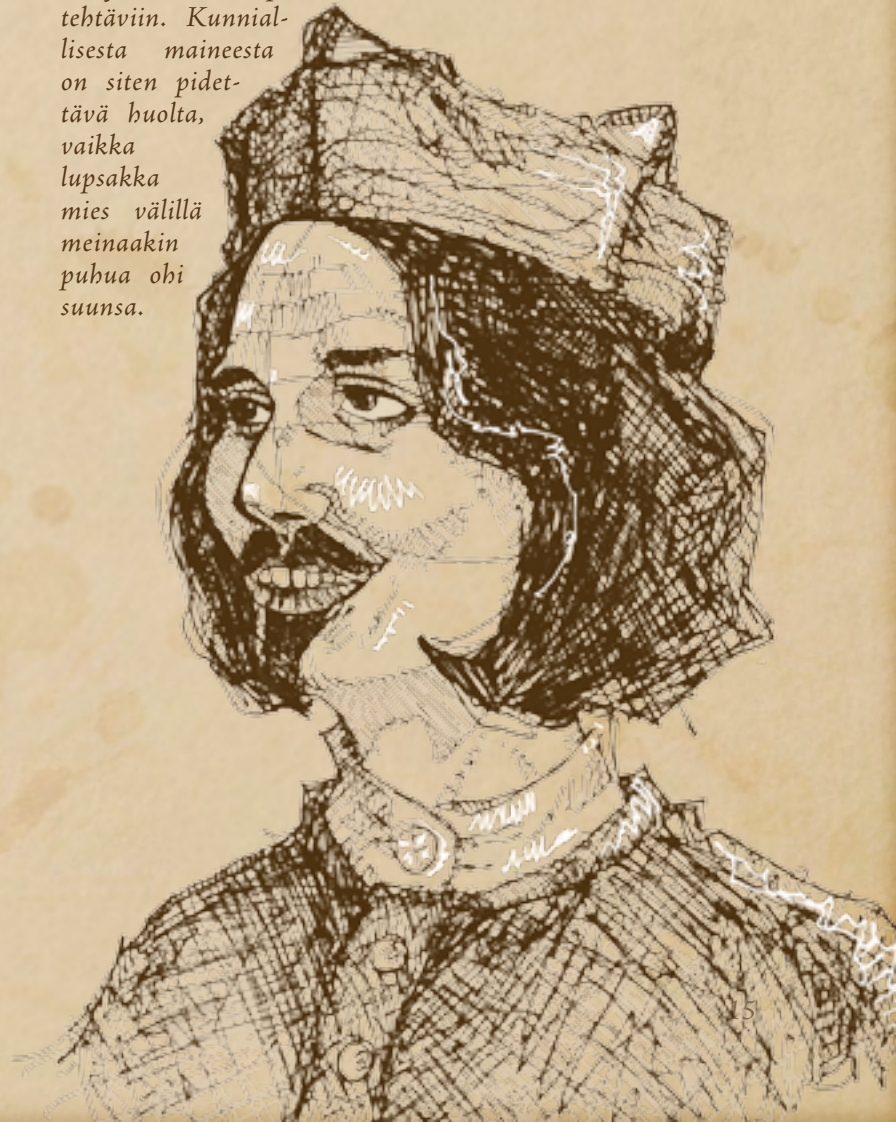 tehtäviin. Kunnial-
lisesta maineesta
on siten pidet-
tävä huolta,
vaikka
lupsakka
mies välillä
meinaakin
puhua ohi
suunsa.
15